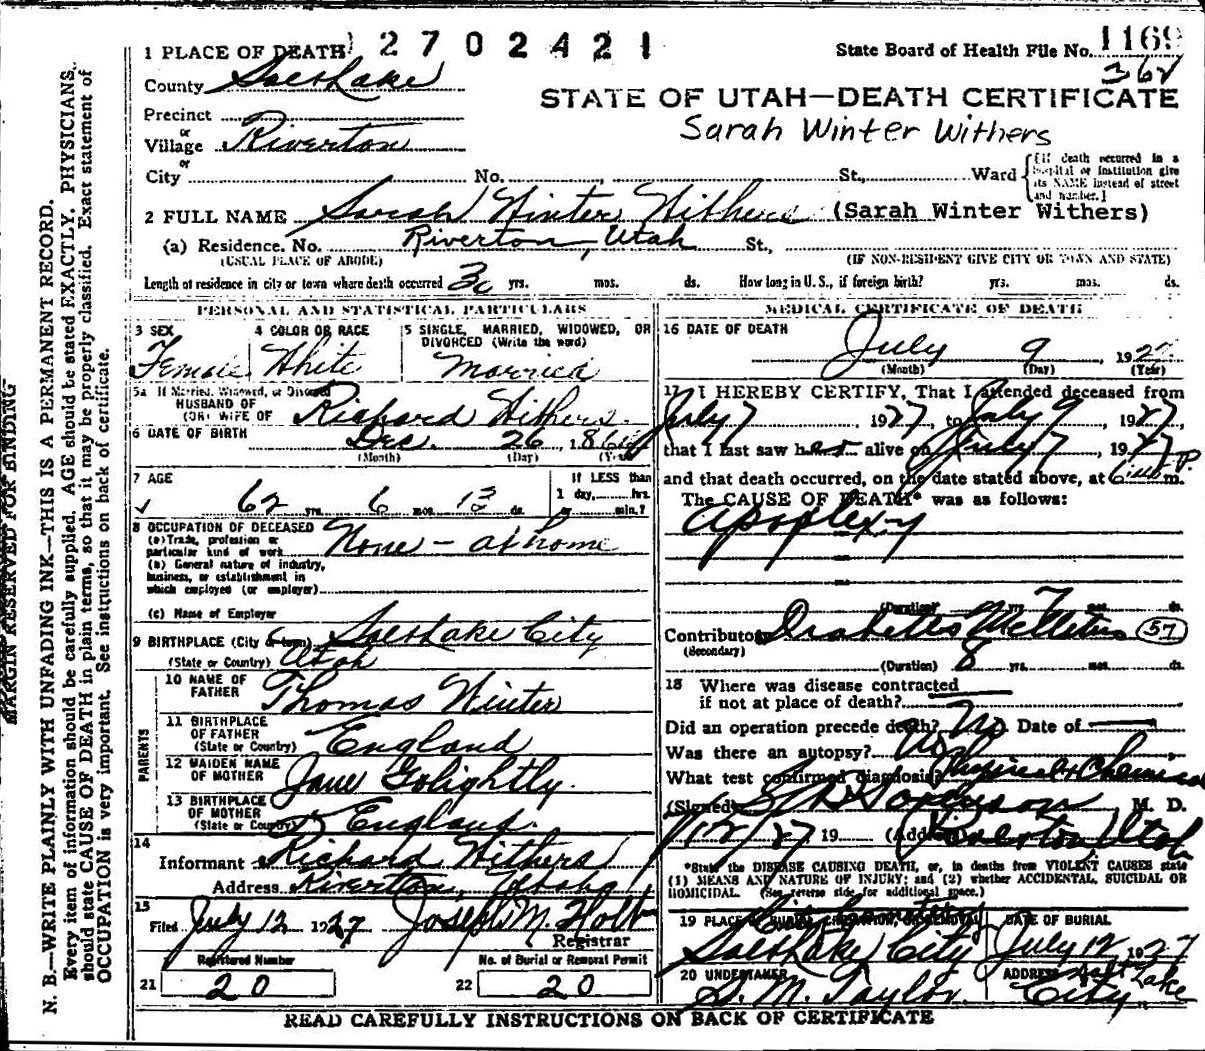 1 PLACE OF DEATH 2702421 State Board of Health File No. 1169
County Salt Lake 362
STATE OF UTAH—DEATH CERTIFICATE
Precinct
or
Village Riverton Sarah Winter Withers
or
City No. St., Ward {(If death occurred in a hospital or institution give its NAME instead of street and number.)
2 FULL NAME Sarah Winter Withers (Sarah Winter Withers)
(a) Residence. No. Riverton, Utah St.,
(USUAL PLACE OF ABODE) (IF NON-RESIDENT GIVE CITY OR TOWN AND STATE)
Length of residence in city or town where death occurred yrs. mos. ds. How long in U.S., if foreign birth? yrs. mos. ds.
PERSONAL AND STATISTICAL PARTICULARS
3 SEX 4 COLOR OR RACE 5 SINGLE, MARRIED, WIDOWED, OR DIVORCED (Write the word)
Female White Married
5a If Married, Widowed, or Divorced
HUSBAND OF
(OR) WIFE OF Richard Withers
6 DATE OF BIRTH Dec. 26 186
(Month) (Day) (Year)
7 AGE If LESS than
1 day, hrs.
62 yrs. 6 mos. 13 ds. or min.?
8 OCCUPATION OF DECEASED
(a) Trade, profession or particular kind of work None - at home
(b) General nature of industry, business, or establishment in which employed (or employer)
(c) Name of Employer
9 BIRTHPLACE (City or town) Salt Lake City
(State or Country) Utah
PARENTS
10 NAME OF FATHER Thomas Winter
11 BIRTHPLACE OF FATHER (State or Country) England
12 MAIDEN NAME OF MOTHER Jane Golightly
13 BIRTHPLACE OF MOTHER (State or Country) England
14
Informant Richard Withers
Address Riverton, Utah
15
Filed July 12 1927 Joseph M. Holt
Registrar
Registered Number No. of Burial or Removal Permit
21 20 22 20
MEDICAL CERTIFICATE OF DEATH
16 DATE OF DEATH
July 9, 1927
(Month) (Day) (Year)
17 I HEREBY CERTIFY, That I attended deceased from
July 7, 1927, to July 9, 1927
that I last saw her alive on July 7, 1927
and that death occurred, on the date stated above, at P.m.
The CAUSE OF DEATH* was as follows:
Apoplexy
(Duration) yrs. mos. ds.
Contributory Diabetes Mellitus 57
(Secondary)
(Duration) 8 yrs. mos. ds.
18 Where was disease contracted
if not at place of death?
Did an operation precede death? No Date of
Was there an autopsy? No
What test confirmed diagnosis? Physical & Chemical
(Signed) M. D.
7/12/27 19 (Address) Riverton Utah
*State the DISEASE CAUSING DEATH, or, in deaths from VIOLENT CAUSES state
(1) MEANS AND NATURE OF INJURY; and (2) whether ACCIDENTAL, SUICIDAL OR
HOMICIDAL. (See reverse side for additional space.)
19 PLACE OF BURIAL, CREMATION, OR REMOVAL DATE OF BURIAL
Salt Lake City July 12 1927
20 UNDERTAKER ADDRESS
S. M. Taylor Salt Lake City
READ CAREFULLY INSTRUCTIONS ON BACK OF CERTIFICATE
MARGIN RESERVED FOR BINDING
N. B.—WRITE PLAINLY WITH UNFADING INK—THIS IS A PERMANENT RECORD.
Every item of information should be carefully supplied. AGE should be stated EXACTLY. PHYSICIANS
should state CAUSE OF DEATH in plain terms, so that it may be properly classified. Exact statement of
OCCUPATION is very important. See instructions on back of certificate.